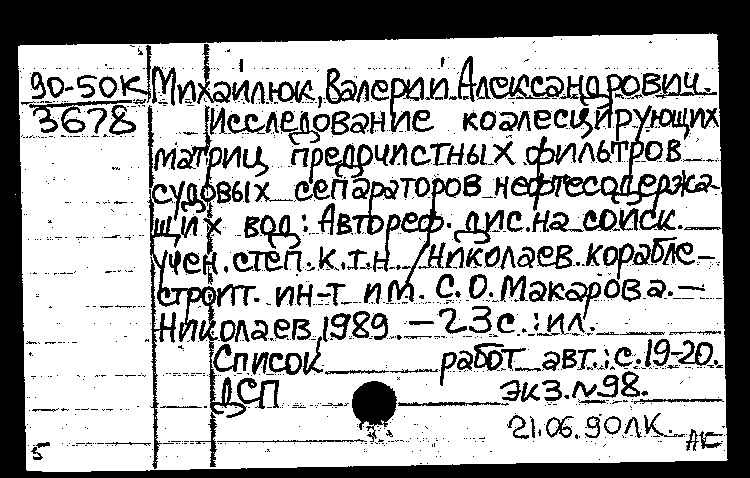 90-50К Михайлюк, Валерий Александрович.
3678 Исследование коалесцирующих
матриц предочистных фильтров
судовых сепараторов нефтесодержа-
щих вод: Автореф. дис. на соиск.
учен. степ. к.т.н. /Николаев. корабле-
строит. ин-т им. С.О. Макарова. —
Николаев, 1989. — 23 с.: ил.
Список работ авт.: с. 19-20.
ДСП экз. №98.
21.06.90 ЛК.
5 АК